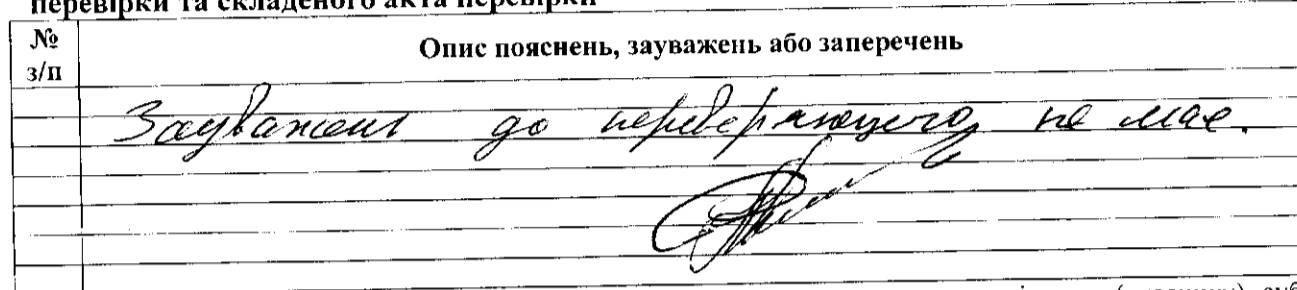 перевірки та складеного акта перевірки
№ з/п
Опис пояснень, зауважень або заперечень
Зауважень до перевіряющего не має.